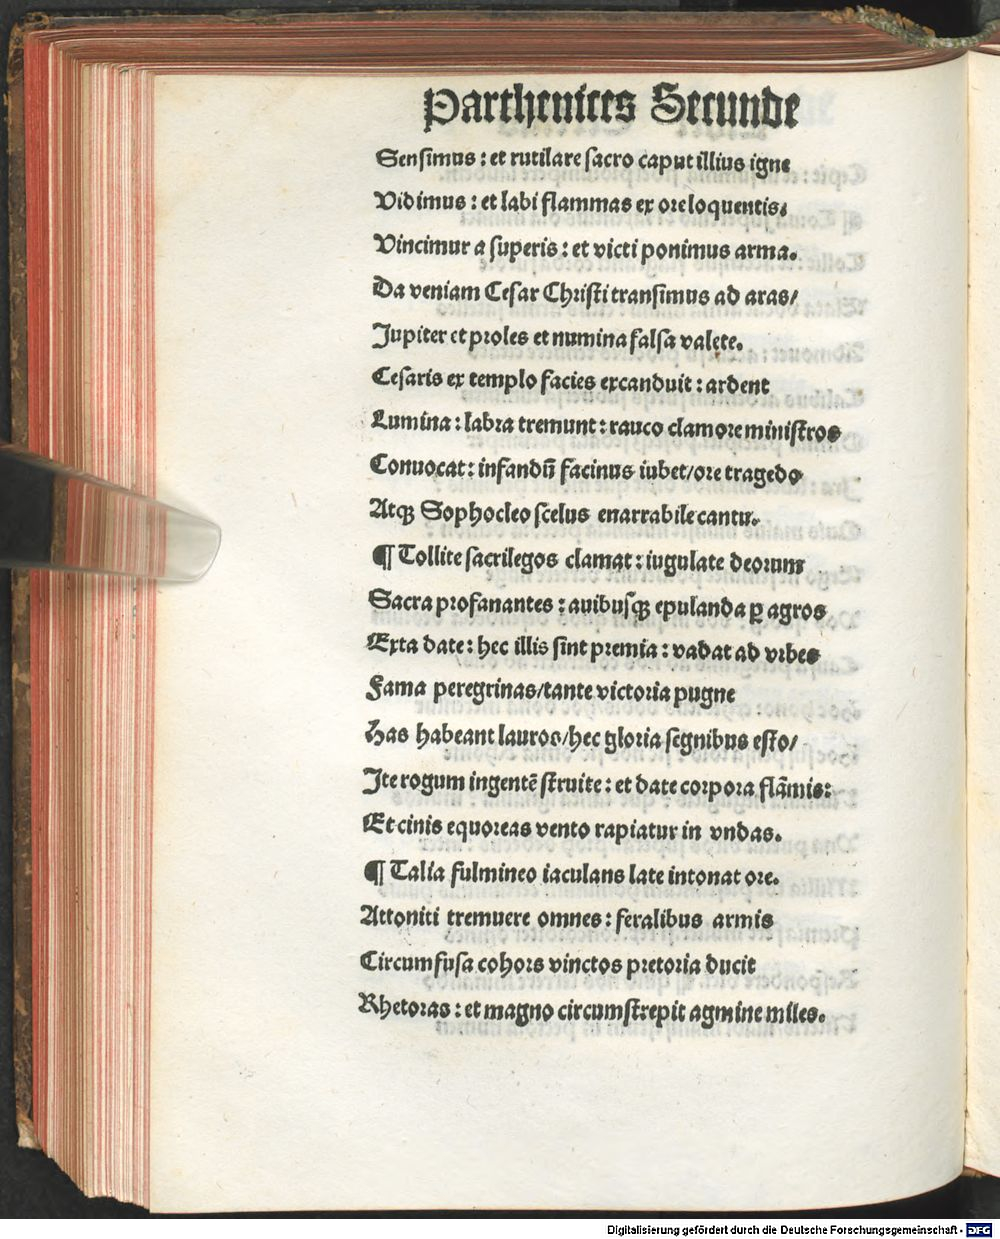 Parthenices Secunde
Sensimus : et rutilare sacro caput illius igne
Vidimus : et labi flammas ex ore loquentis.
Vincimur a superis : et victi ponimus arma.
Da veniam Cesar Christi transimus ad aras/
Jupiter et proles et numina falsa valete.
Cesaris ex templo facies excanduit : ardent
Lumina : labra tremunt : rauco clamore ministros
Conuocat : infandū facinus iubet/ore tragedo
Atqꝫ Sophocleo scelus enarrabile cantu.
¶ Tollite sacrilegos clamat : iugulate deorum
Sacra profanantes : auibusqꝫ epulanda ꝑ agros
Exta date : hec illis sint premia : vadat ad vrbes
Fama peregrinas/tante victoria pugne
Has habeant lauros/hec gloria segnibus esto/
Ite rogum ingentē struite : et date corpora flāmis:
Et cinis equoreas vento rapiatur in vndas.
¶ Talia fulmineo iaculans late intonat ore.
Attoniti tremuere omnes : feralibus armis
Circumfusa cohors vinctos pretoria ducit
Rhetoras : et magno circumstrepit agmine miles.
Digitalisierung gefördert durch die Deutsche Forschungsgemeinschaft - DFG